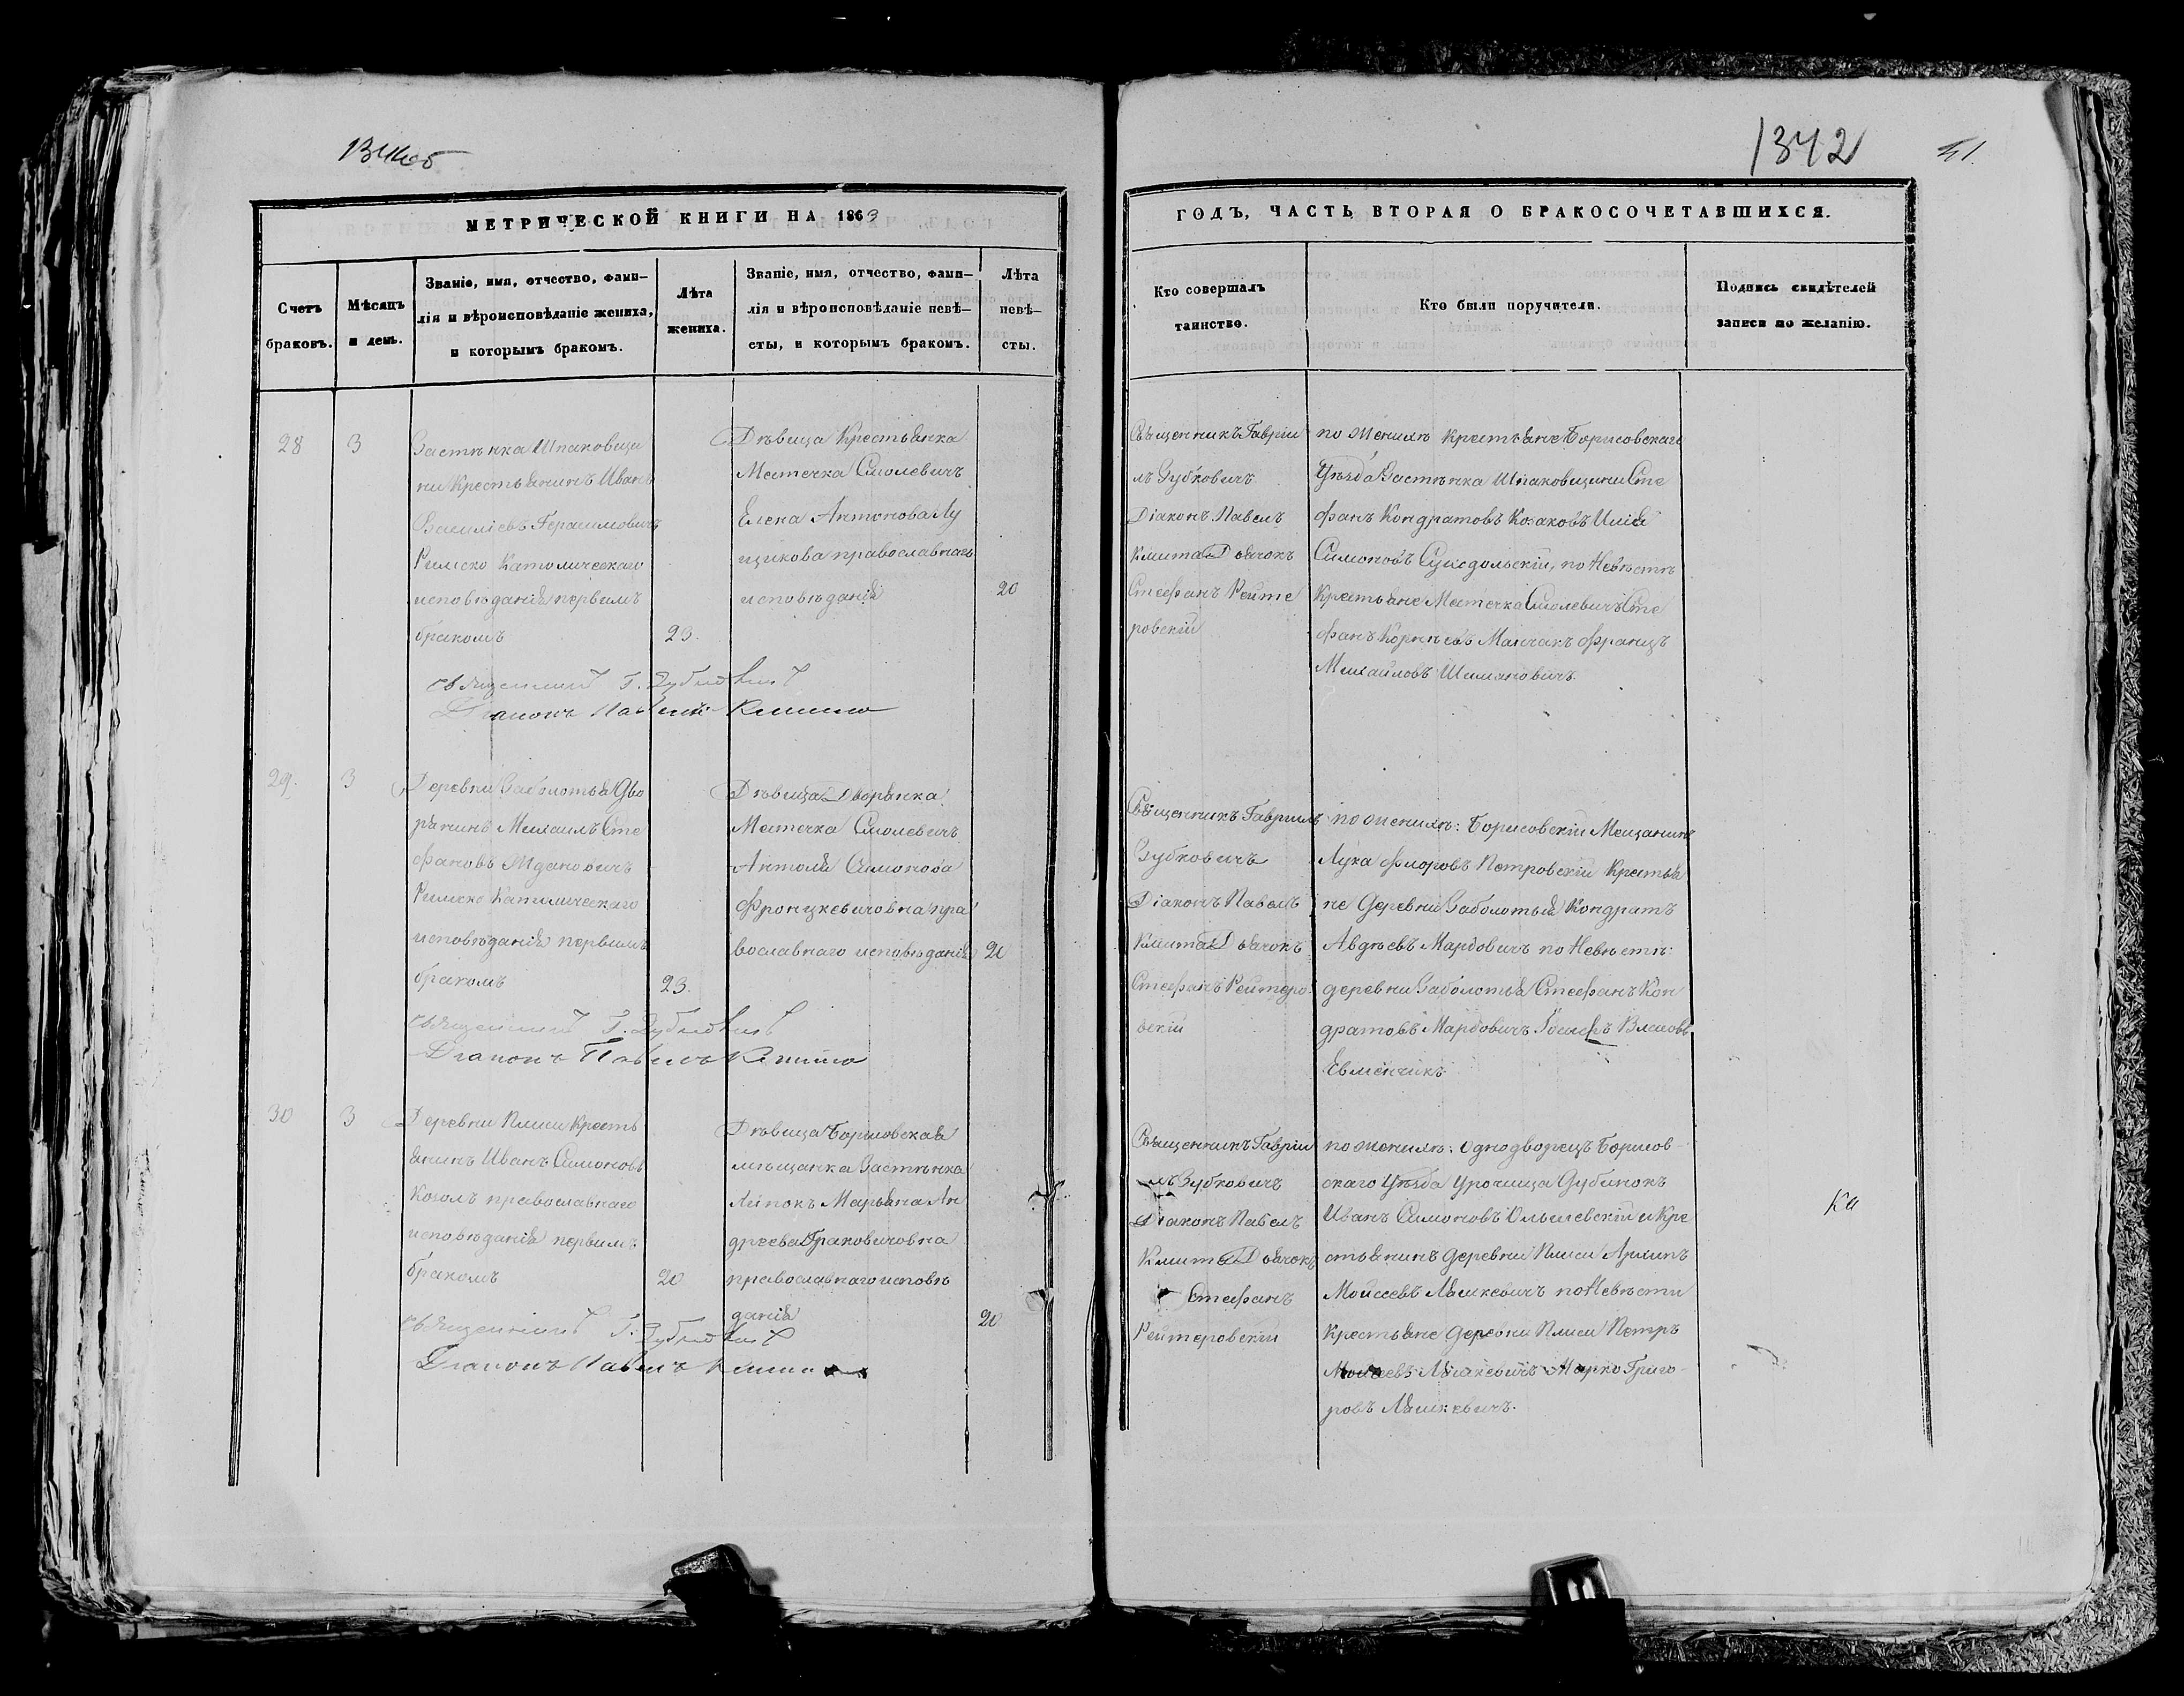 1342
МЕТРИЧЕСКОЙ КНИГИ НА 1863
Счетъ браковъ.
Мѣсяцъ и день.
Званіе, имя, отчество, фами-
лія и вѣроисповѣданіе жениха,
и которымъ бракомъ.
Лѣта жениха.
Званіе, имя, отчество, фами-
лія и вѣроисповѣданіе невѣ-
сты, и которымъ бракомъ.
Лѣта невѣ-
сты.
28
3
Застѣнка Шпаковщи
ны Крестьянинъ Иванъ
Василіевъ Герасимовичъ
Римско Католическаго
исповѣданія первымъ
бракомъ
23.
Дѣвица Крестьянка
Местечка Смолевичъ
Елена Антонова Лу
щикова православнаго
исповѣданія
20
Священникъ Г. Зубковичъ
Діаконъ Павелъ Кмита
29.
3
Деревни Заболотья Дво
рянинъ Михаилъ Сте
фановъ Ждановичъ
Римско Католическаго
исповѣданія первымъ
бракомъ
23.
Дѣвица Дворянка
Местечка Смолевичъ
Антоля Симонова
Фронцкевичовна пра
вославнаго исповѣданія
20
Священникъ Г. Зубковичъ
Діаконъ Павелъ Кмита
30
3
Деревни Плиси Кресть
янинъ Иванъ Симоновъ
Козолъ православнаго
исповѣданія первымъ
бракомъ
20
Дѣвица Борисовская
мѣщанка Застѣнка
Липокъ Марьяна Ан
дреева Драковичовна
православнаго исповѣ
данія
20
Священникъ Г. Зубковичъ
Діаконъ Павелъ
ГОДЪ, ЧАСТЬ ВТОРАЯ О БРАКОСОЧЕТАВШИХСЯ.
Кто совершалъ
таинство.
Кто были поручители.
Подпись свидѣтелей
записи по желанію.
Священникъ Гавріи
лъ Зубковичъ
Діаконъ Павелъ
Кмита Дьячокъ
Стефанъ Рейте
ровскій
по женихѣ Крестьяне Борисовскаго
Уѣзда Застѣнка Шпаковщины Сте
фанъ Кондратовъ Козаковъ Илія
Симоновъ Суходольскій, по Невѣстѣ
Крестьяне Местечка Смолевичъ Сте
фанъ Корнѣевъ Манчакъ Францъ
Михайловъ Шимановичъ.
Священникъ Гавріилъ
Зубковичъ
Діаконъ Павелъ
Кмита Дьячокъ
Стефанъ Рейтеро
вскій
по женихѣ: Борисовскій Мещанинъ
Лука Флоровъ Петровскій Крестья
не Деревни Заболотья Кондратъ
Авдѣевъ Мардовичъ по Невѣстѣ:
деревни Заболотья Стефанъ Кон
дратовъ Мардовичъ Іосифъ
Евменчикъ
Священникъ Гавріи
лъ Зубковичъ
Діаконъ Павелъ
Кмита Дьячокъ
Стефанъ
Рейтеровскій
по женихѣ: Однодворецъ Борисов-
скаго Уѣзда Урочища Дубинокъ
Иванъ Симоновъ Ольшевскій и Кре
стьянинъ деревни Плиси Архипъ
Мойсеевъ Ляшкевичъ по Невѣсти
Крестьяне деревни Плиси Петръ
Мойсеевъ Ляшкевичъ Марко Григо-
ровъ Ляшкевичъ.